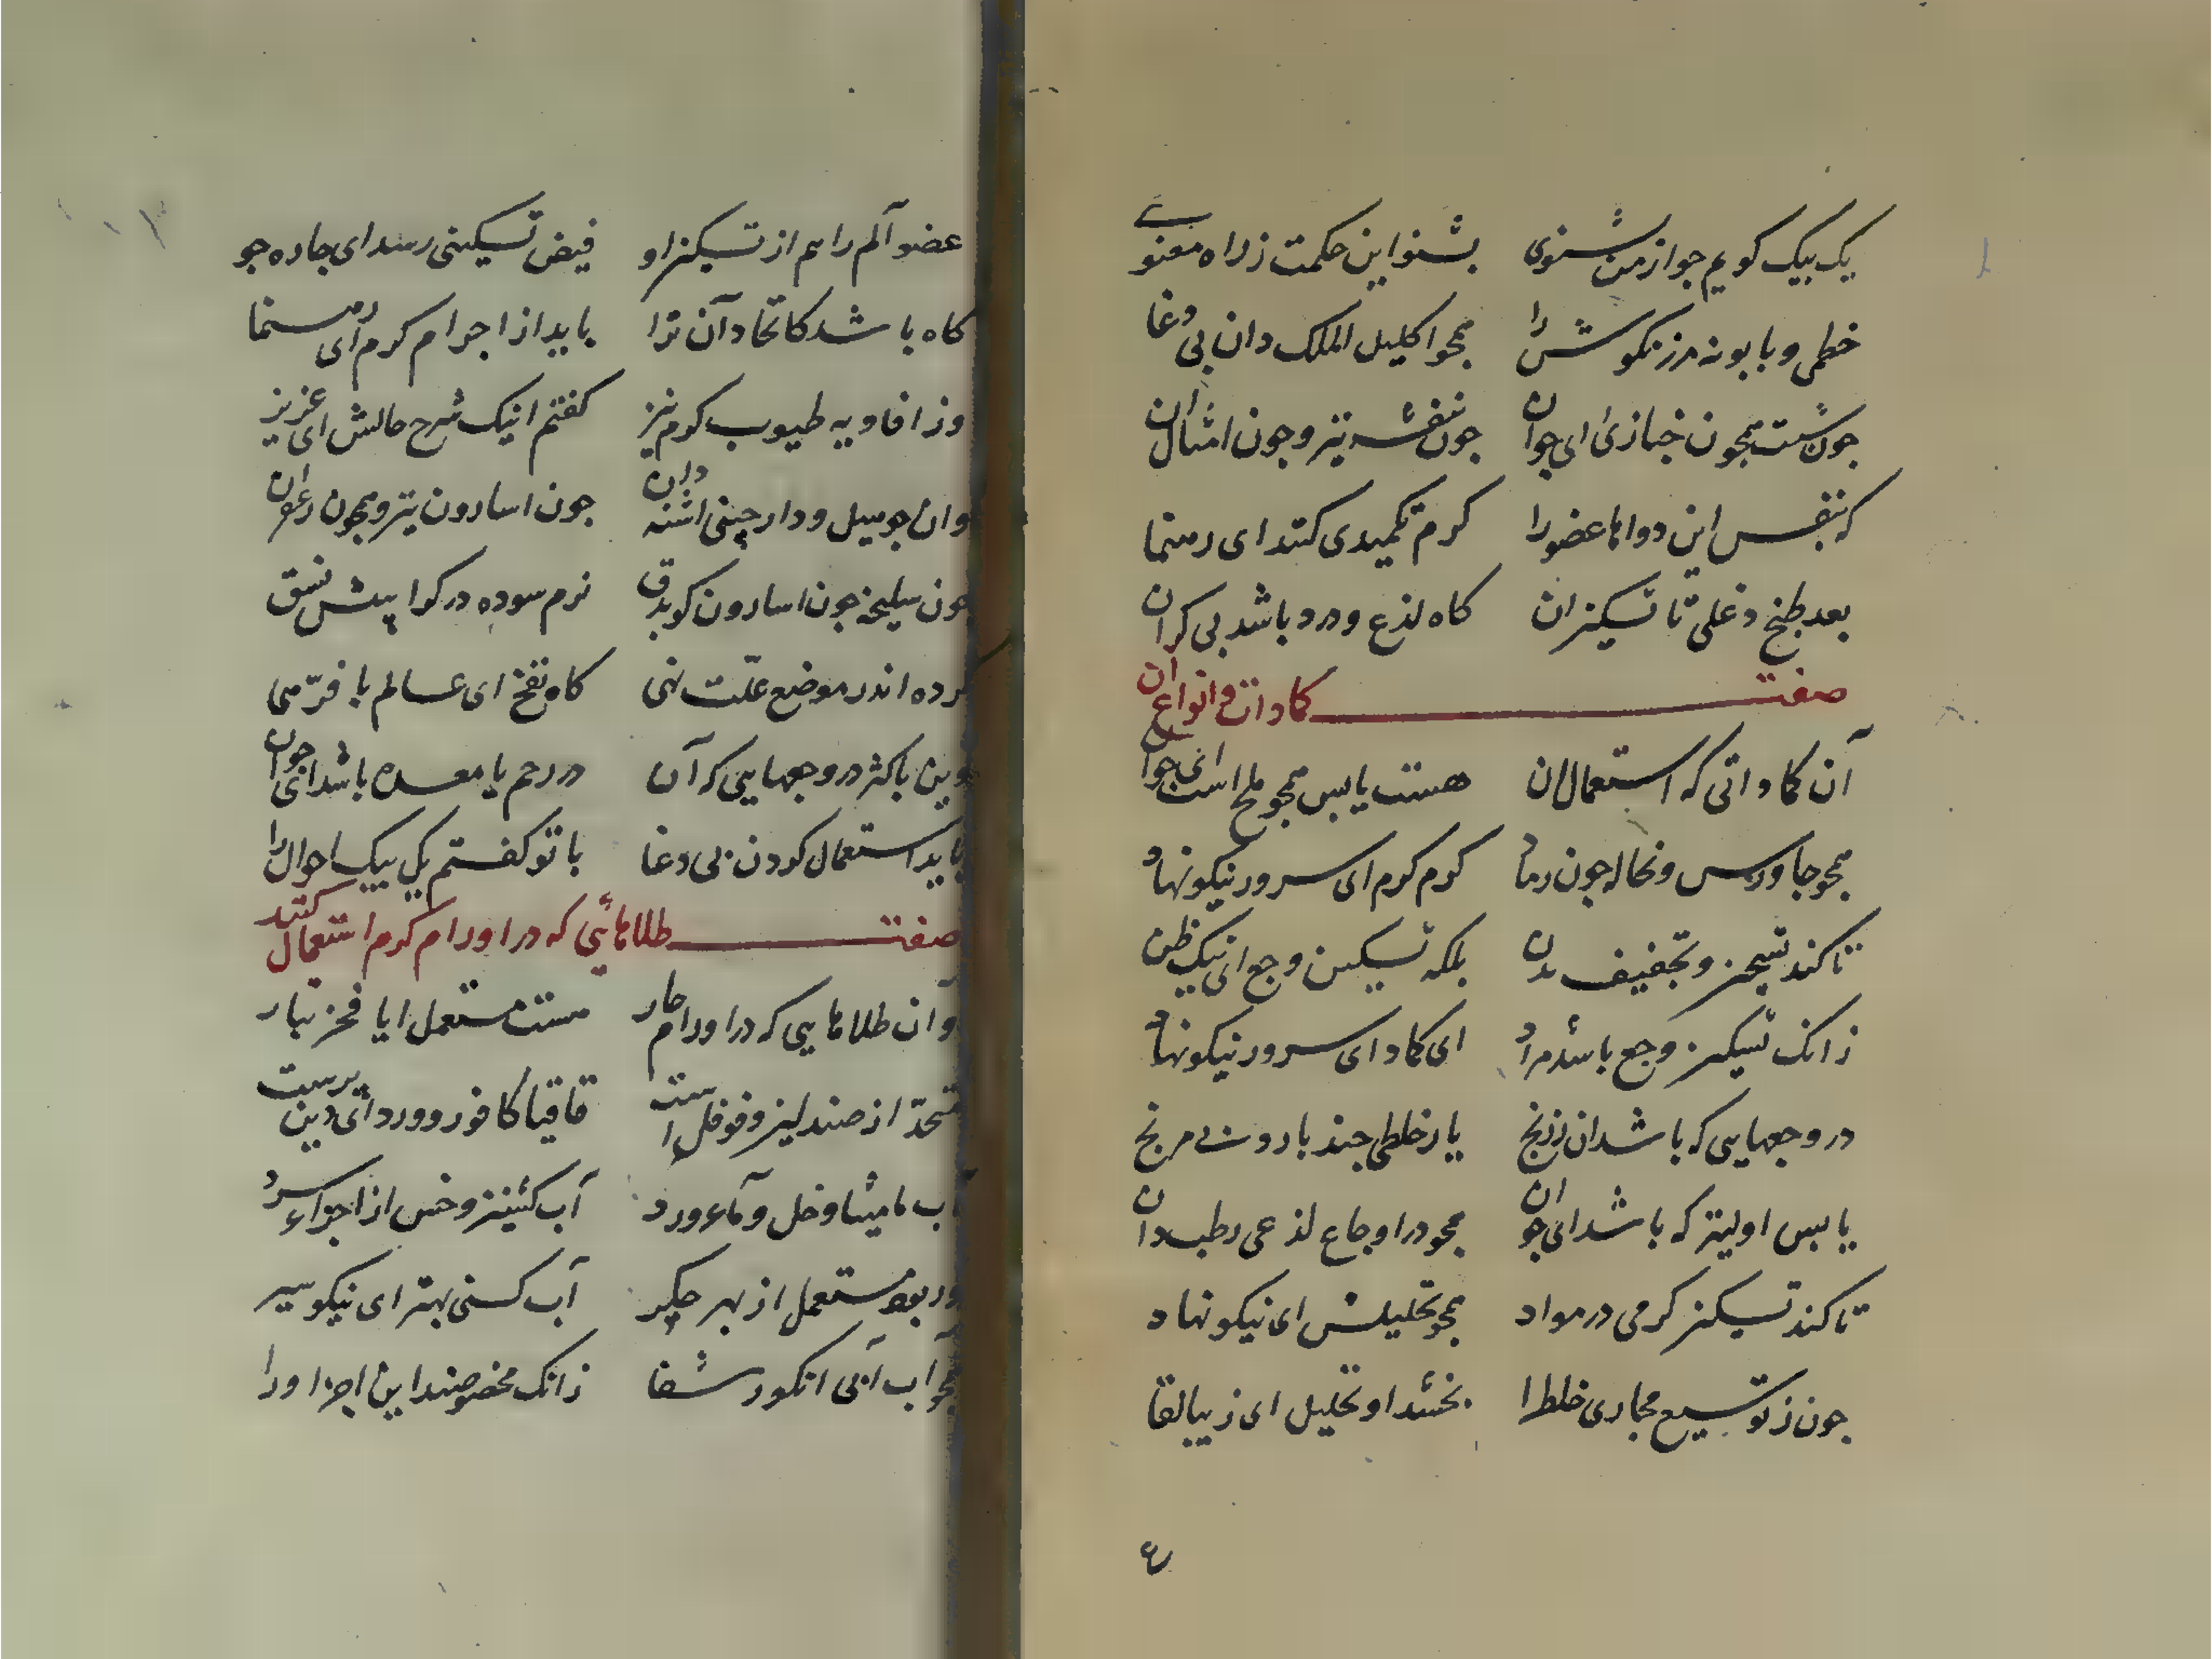 یک بیک کویم جو از من بشنوی بشنو این حکمت ز راه معنوی
خطمی و بابونه مرزنکوش را همجو اکلیل الملک دان بی دغا
جون شبت همجون خبازی ای جوان جون بنفشه نیز و جون امثال ان
که بنفس این دواها عضو را کرم تکمیدی کنند ای رهنما
بعد طبخ و غلی تا تسکین ان کاه لذع و درد باشد بی کران
صفت کمادات و انواع ان
آن کماداتی که استعمال ان هست یابس همجو ملح است ای جوان
همجو جاورس و نخاله جون رماد کرم کرم ای سرور نیکو نهاد
تا کند تسخین و تجفیف بدن بلکه تسکین وجع ای نیک ظن
زانک تسکین وجع باشد مراد ای کماد ای سرور نیکو نهاد
در وجعهایی که باشد ان ز رنج یا ز خلطی جند بارد مرنج
یابس اولیتر که باشد ای جوان همجو در اوجاع لذعی رطب دان
تا کند تسکین کرمی در مواد همجو تحلیلش ای نیکو نهاد
جون ز توسیع مجاری خلط را بخشد او تحلیل ای زیبا لقا
عضو آلم را هم از تسکین او فیض تسکینی رسد ای جاره جو
کاه باشد کاتخاد آن ترا باید از اجرام کرم ای رهنما
وز افاویه طیوب کرم نیز کفتم اینک شرح حالش ای عزیز
وان جو سیل و دارچینی اشنه دان جون اسارون نیز و همجون زعفران
جون سلیخه جون اسارون کو بدق نرم سوده در کرا پیش نسق
کرده اندر موضع علّت نهی کاه نفخ ای عالم با فرّهی
وین باکثر در وجعهایی که آن در رحم یا معده باشد ای جوان
باید استعمال کردن بی دغا با تو کفتم یک بیک احوال را
صفت طلاهائی که در اورام کرم استعمال کنند
وان طلاهایی که در اورام حار هست مستعمل ایا فخر تبار
متحذ از صندلین و فوفل است قاقیا کافور و ورد ای دین پرست
آب مامیثا و خل و مآء ورد آب کشنیز و خس از اجزاء سرد
ور بود مستعمل از بهر جکر آب کسنی بهتر ای نیکو سیر
همجو آب آبی انکور شفا زانک مخصوصند این اجزا ورا
ع